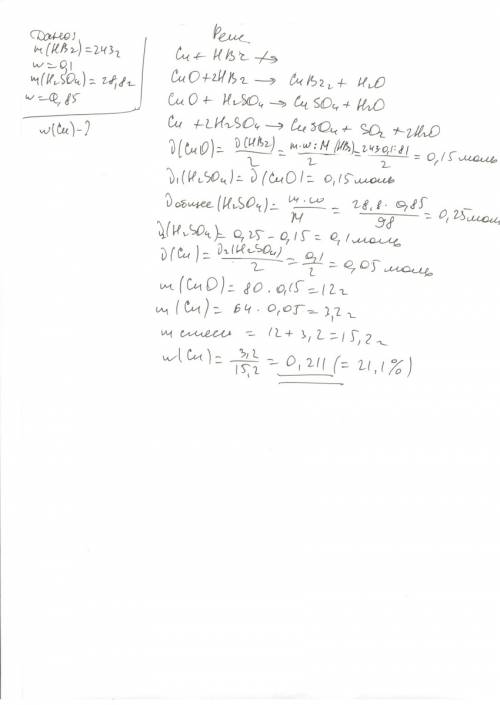 Дано:
m(HBr)=243г
w=0,1
m(H₂SO₄)=28,8г
w=0,85
w(Cu)-?
Реш.
Cu + HBr ↛
CuO+2HBr → CuBr₂ + H₂O
CuO + H₂SO₄ → CuSO₄ + H₂O
Cu + 2H₂SO₄ → CuSO₄ + SO₂ + 2H₂O
ν(CuO) = ν(HBr)/2 = m·w:M(HBr)/2 = 243·0,1:81/2 = 0,15 моль
ν₁(H₂SO₄) = ν(CuO) = 0,15 моль
ν общее (H₂SO₄) = m·w/M = 28,8·0,85/98 = 0,25 моль
ν₂(H₂SO₄) = 0,25 - 0,15 = 0,1 моль
ν(Cu) = ν₂(H₂SO₄)/2 = 0,1/2 = 0,05 моль
m(CuO) = 80·0,15 = 12г
m(Cu) = 64·0,05 = 3,2г
m смеси = 12 + 3,2 = 15,2г
w(Cu) = 3,2/15,2 = 0,211 (= 21,1%)